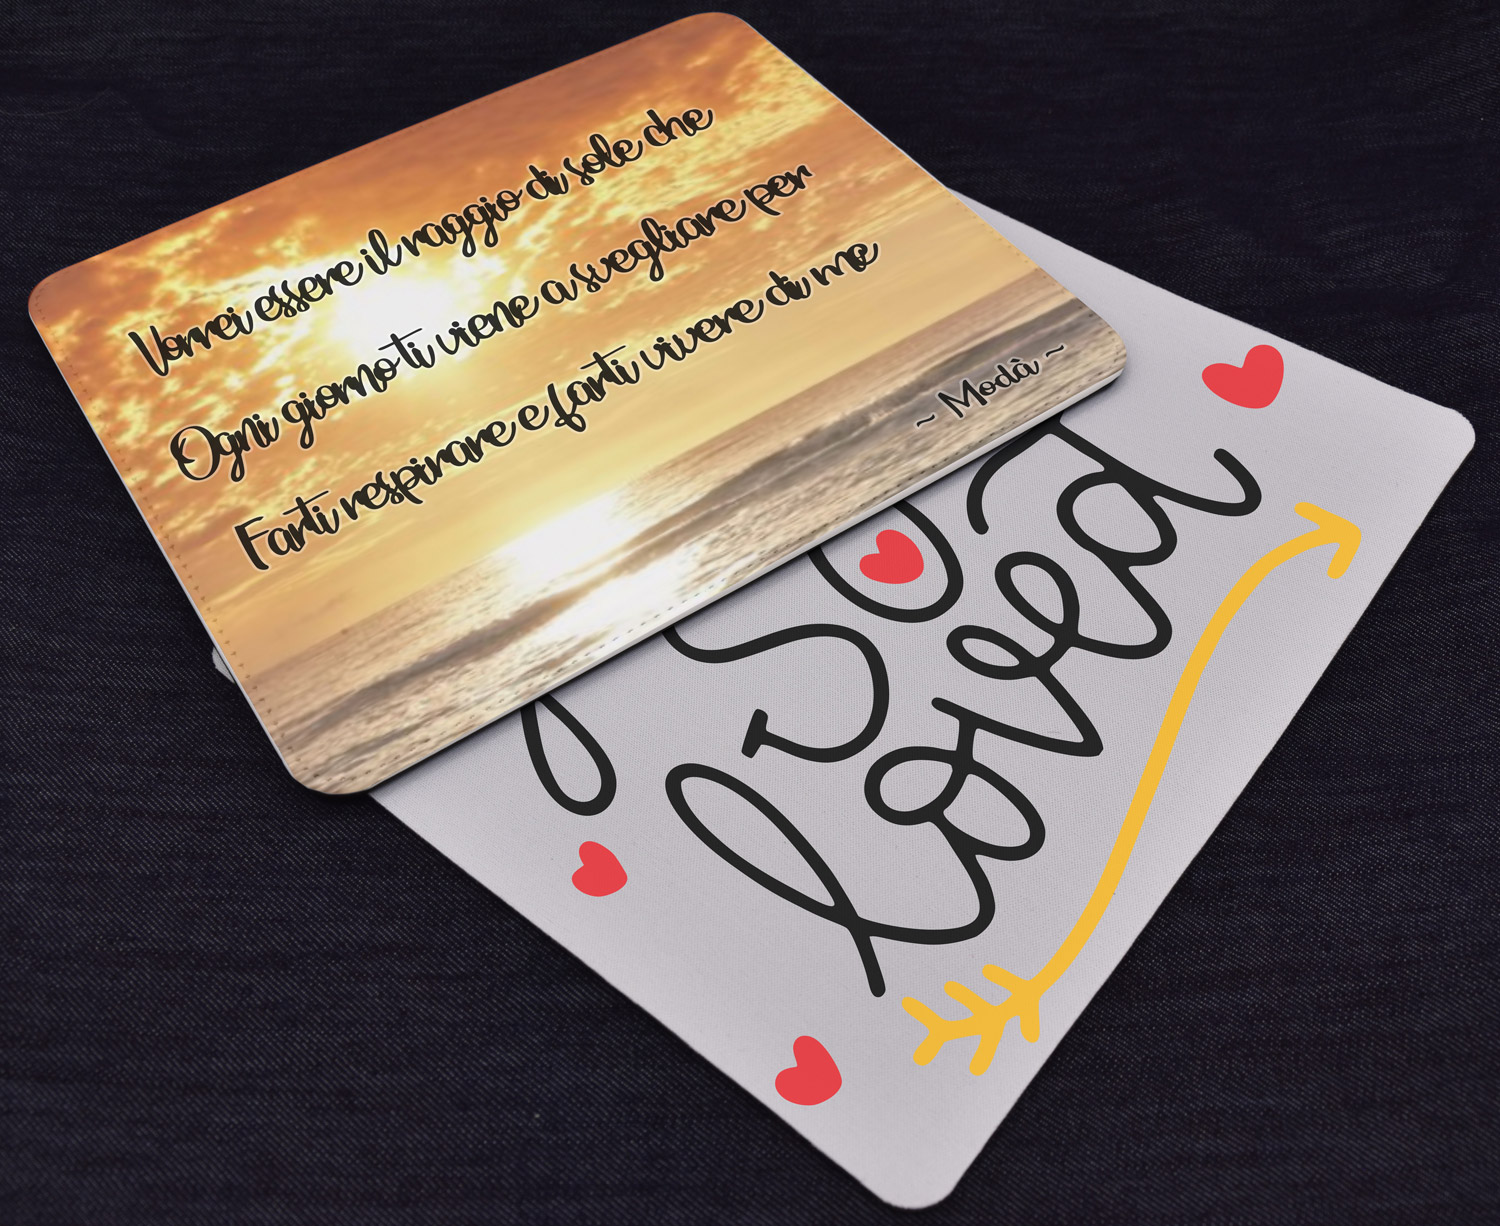 Vorrei essere il raggio di sole che
Ogni giorno ti viene a svegliare per
Farti respirare e farti vivere di me
~ Modà ~
so
loved